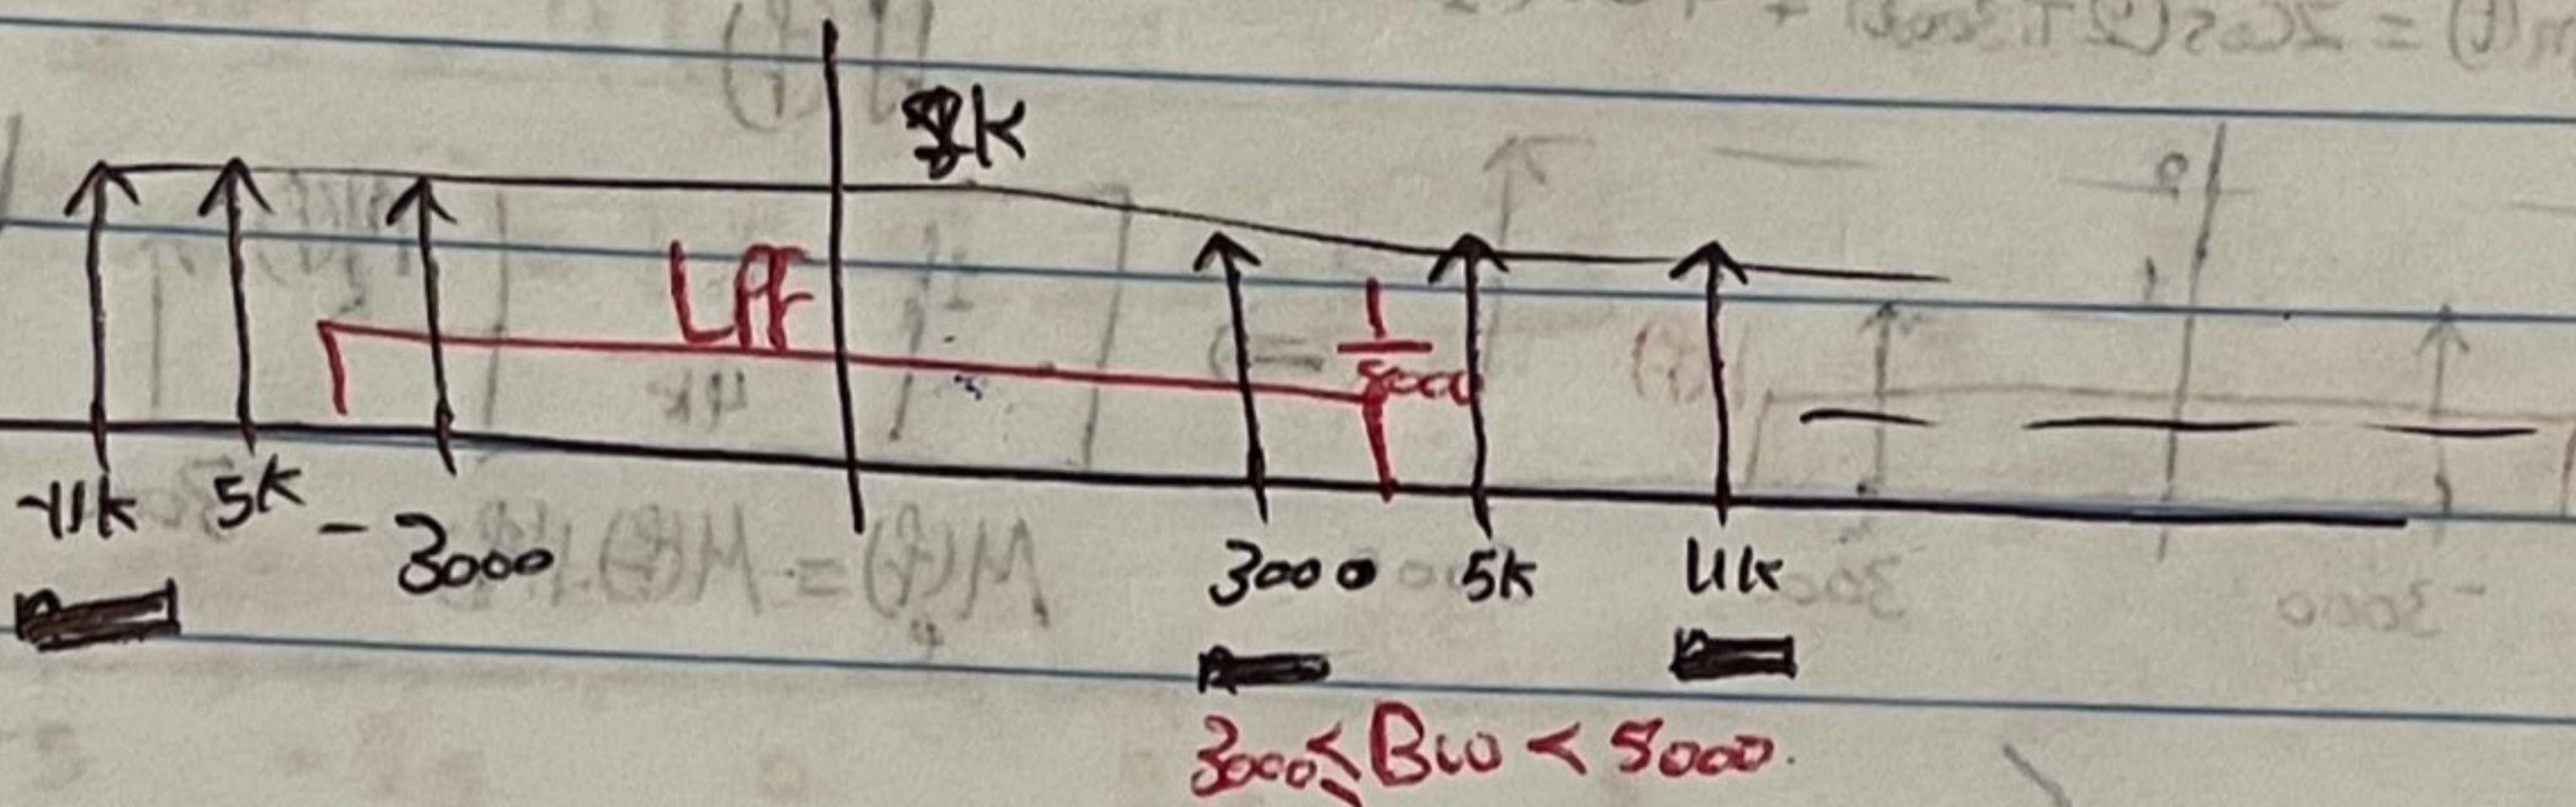 8K
LPF
1
8000
-11k 5K -3000 3000 5K 11k
3000 ≤ BW < 5000.